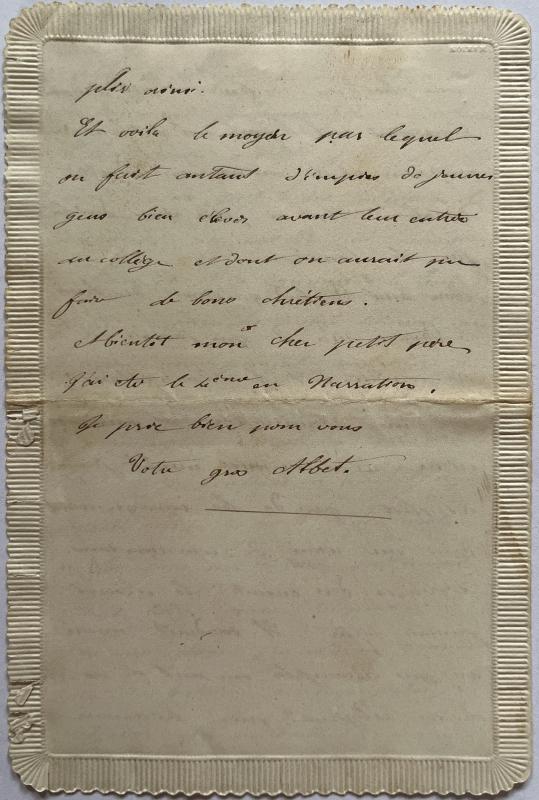 plus ainsi.
Et voilà le moyen par lequel
on fait autant d'impies de jeunes
gens bien élevés avant leur entrée
au collège et dont on aurait pu
faire de bons chrétiens.
A bientôt mon cher petit père
j'ai été le 2ème en Narration.
Je prie bien pour vous
Votre gros Albet.